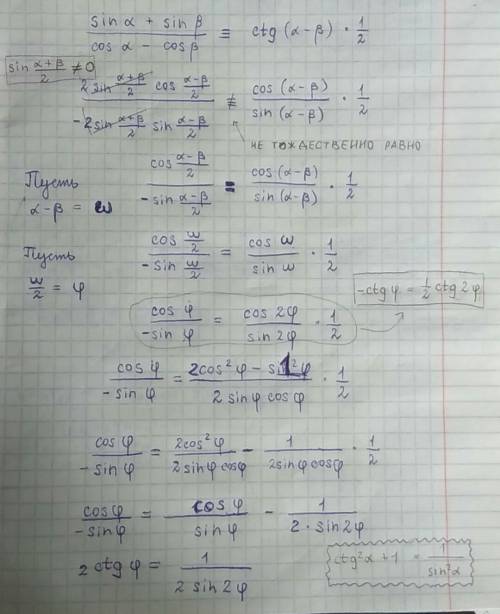 (sin α + sin β)/(cos α − cos β) ≡ ctg (α−β) · 1/2
sin (α+β)/2 ≠ 0
(2 sin (α+β)/2 cos (α−β)/2)/(−2 sin (α+β)/2 sin (α−β)/2) ≢ cos (α−β)/sin (α−β) · 1/2
не тождественно равно
Пусть
α−β = ω
(cos (α−β)/2)/(−sin (α−β)/2) = cos (α−β)/sin (α−β) · 1/2
Пусть
ω/2 = φ
(cos ω/2)/(−sin ω/2) = cos ω/sin ω · 1/2
cos φ/−sin φ = cos 2φ/sin 2φ · 1/2
−ctg φ = 1/2 ctg 2φ
cos φ/−sin φ = (2cos²φ − 1)/(2 sin φ cos φ) · 1/2
cos φ/−sin φ = 2cos²φ/(2 sin φ cos φ) − 1/(2 sin φ cos φ) · 1/2
cos φ/−sin φ = cos φ/sin φ − 1/(2 · sin 2φ)
2 ctg φ = 1/(2 sin 2φ)
ctg²α + 1 = 1/sin²α